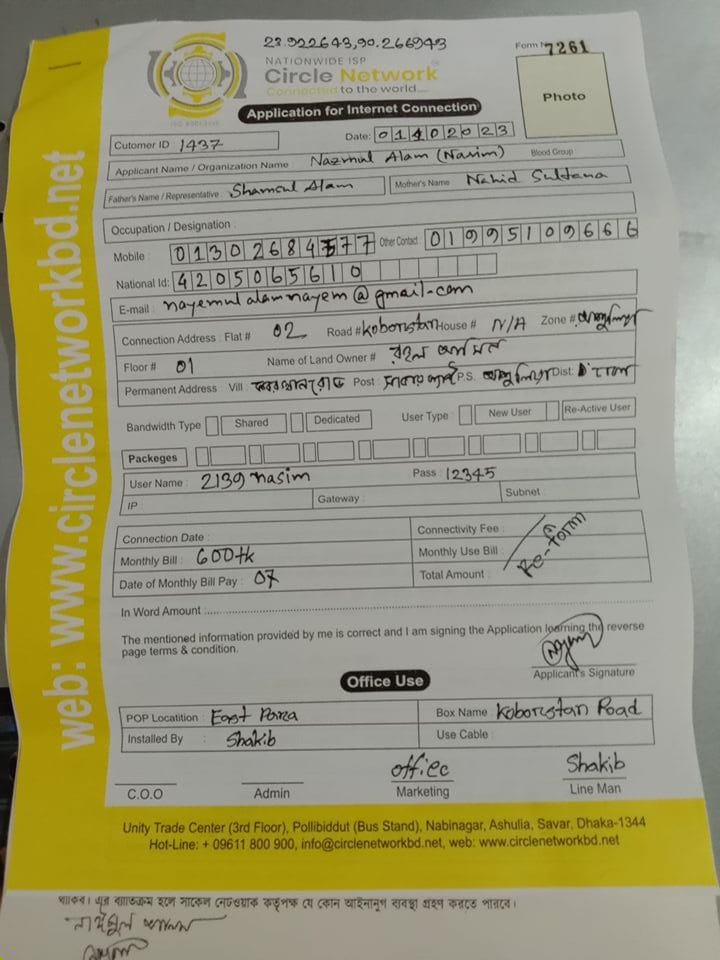 23.922643,90.266943
Form N 7261
NATIONWIDE ISP
Circle Network
Connected to the world....
ISO 9001:2015
Application for Internet Connection
Photo
Cutomer ID 1437 Date: 01402023
Applicant Name / Organization Name Nazmul Alam (Nasim) Blood Group
Father's Name / Representative : Shamsul Alam Mother's Name Nahid Sultana
Occupation / Designation :
Mobile : 01302684577 Other Contact : 01995109666
National Id: 4205065610
E-mail : nayemulalamnayem@gmail.com
Connection Address : Flat # 02 Road # koborstan House # N/A Zone #
Floor # 01 Name of Land Owner #
Permanent Address Vill : Post : P.S. Dist:
Bandwidth Type Shared Dedicated User Type : New User Re-Active User
Packeges
User Name : 2139nasim Pass : 12345
IP : Gateway : Subnet :
Connection Date : Connectivity Fee :
Monthly Bill : 600tk Monthly Use Bill :
Date of Monthly Bill Pay : 07 Total Amount :
Re-form
In Word Amount :
The mentioned information provided by me is correct and I am signing the Application learning the reverse
page terms & condition.
Applicant's Signature
Office Use
POP Locatition : East Para Box Name Koborstan Road
Installed By : Shakib Use Cable :
office Shakib
C.O.O Admin Marketing Line Man
Unity Trade Center (3rd Floor), Pollibiddut (Bus Stand), Nabinagar, Ashulia, Savar, Dhaka-1344
Hot-Line: + 09611 800 900, info@circlenetworkbd.net, web: www.circlenetworkbd.net
web: www.circlenetworkbd.net
থাকিব। এর ব্যাতিক্রম হলে সার্কেল নেটওয়াক কর্তৃপক্ষ যে কোন আইনানুগ ব্যবস্থা গ্রহণ করতে পারবে।